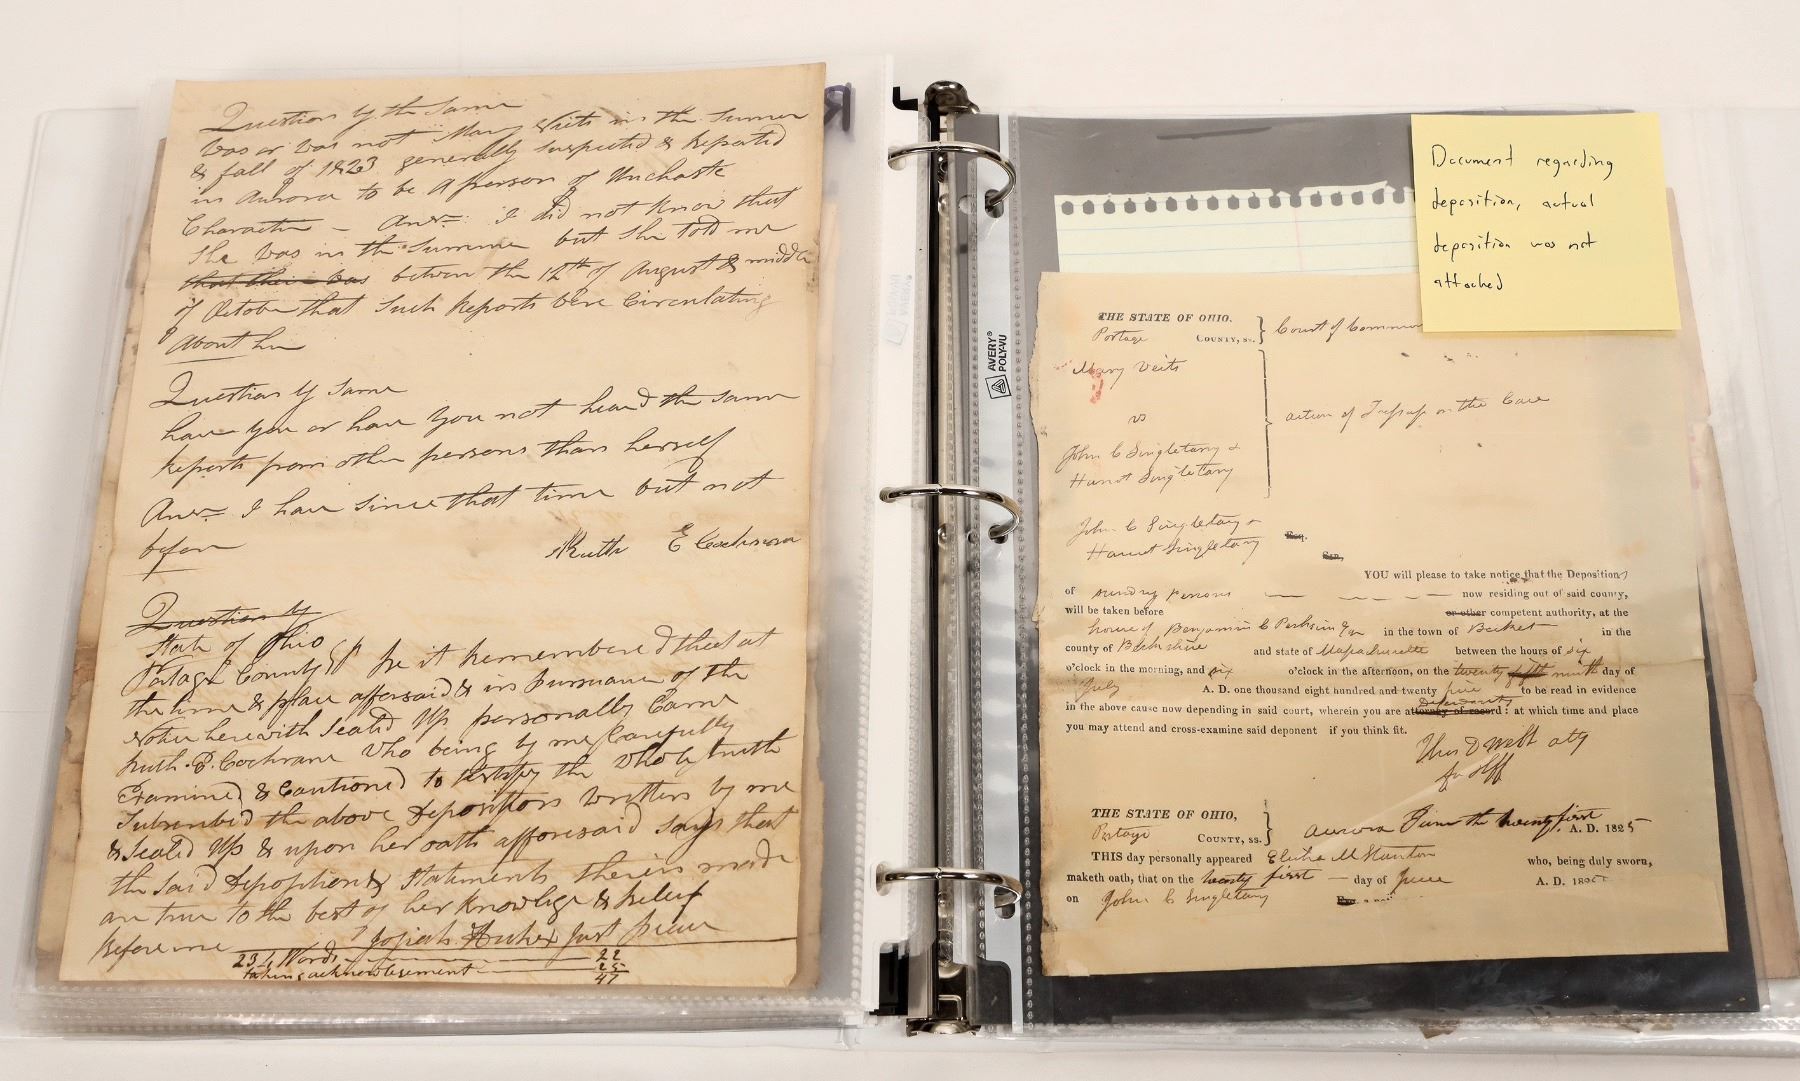 Question by the Same
Was or was not Mary Veits in the Sumer
& fall of 1823 generally Suspected & Reported
in Aurora to be a person of Unchaste
Character – Answ: I did not Know that
She was in the Summer but She told me
that their was betwen the 12th of August & middle
of October that Such Reports were Circulating
About her
Question by Same
have you or have you not heard the same
Reports from other persons than herself
Answ I have Since that time but not
before
Ruth E Cochran
Question by
State of Ohio
Portage County SS Be it Remembered that at
the time & place aforesaid & in pursuance of the
Notice herewith Sealed Up personally Came
Ruth E. Cochrane Who being by me Carefully
Examined & Cautioned to testify the whole truth
Subscribed the above Deposition written by me
& Sealed Up & upon her oath afforesaid Says that
the Said Deposition & Statements therein made
are true to the best of her Knowlige & Belief
Before me Josiah Just Peace
231 Words 22
taking acknowlegement 25
47
AVERY®
POLY-VU
Document regarding
deposition, actual
deposition was not
attached
THE STATE OF OHIO,
Portage COUNTY, ss. } Court of Common
Mary Veits
vs
action of Trespass on the Case
John C Singletary &
Harriot Singletary
John C Singletary &
Harriot Singletary Esq.
YOU will please to take notice that the Deposition
of sundry persons now residing out of said county,
will be taken before or other competent authority, at the
house of Benjamin C Perkins Esq in the town of Becket in the
county of Berkshire and state of Massachusetts between the hours of six
o'clock in the morning, and six o'clock in the afternoon, on the twenty fifth ninth day of
July A. D. one thousand eight hundred and twenty five to be read in evidence
in the above cause now depending in said court, wherein you are attorney of record Defendants: at which time and place
you may attend and cross-examine said deponent if you think fit.
Thos D Webb atty
for Plff
THE STATE OF OHIO,
Portage COUNTY, ss. } Aurora June the twenty first, A. D. 1825
THIS day personally appeared Elisha M Stanton who, being duly sworn,
maketh oath, that on the twenty first day of June A. D. 182
on John C Singletary